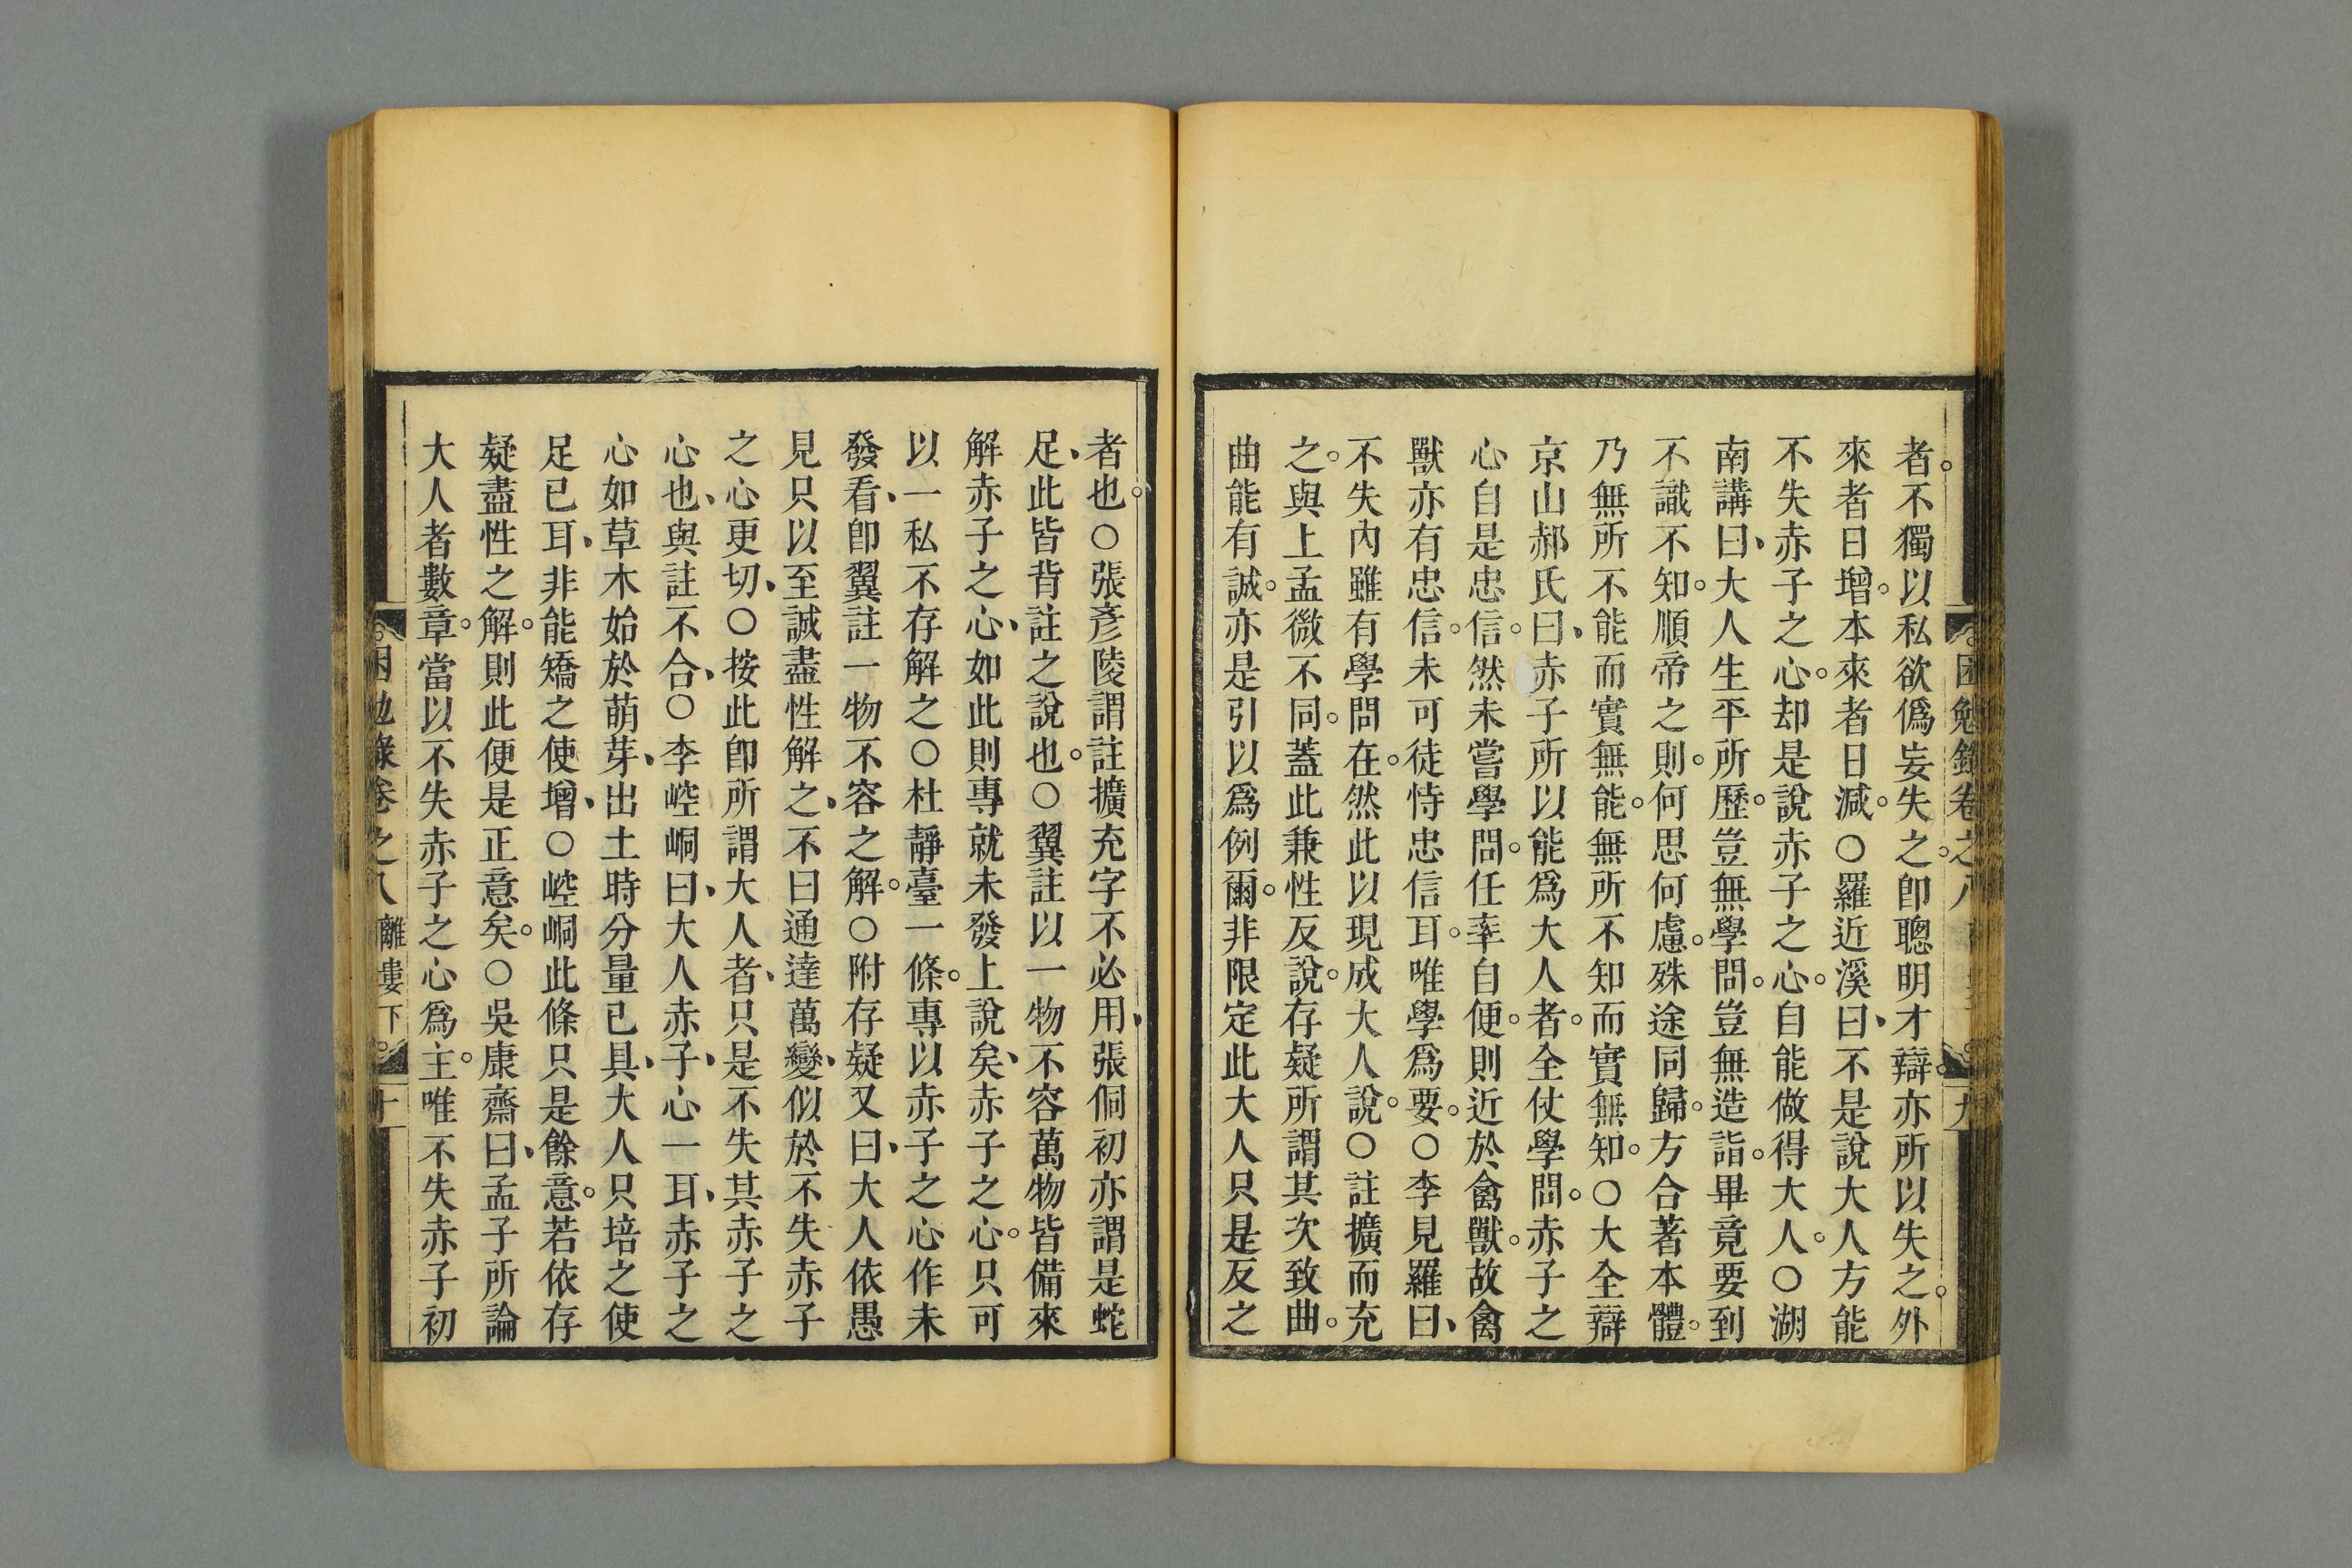 困勉錄卷之八
九
者。不獨以私欲僞妄失之。卽聰明才辯。亦所以失之。外
來者日增。本來者日減。○羅近溪曰、不是說大人方能
不失赤子之心。却是說赤子之心。自能做得大人。○湖
南講曰、大人生平所歷。豈無學問。豈無造詣。畢竟要到
不識不知。順帝之則。何思何慮。殊途同歸。方合著本體。
乃無所不能而實無能。無所不知而實無知。○大全辯
京山郝氏曰、赤子所以能爲大人者。全仗學問。赤子之
心自是忠信。然未嘗學問。任率自便。則近於禽獸。故禽
獸亦有忠信。未可徒恃忠信耳。唯學爲要。○李見羅曰、
不失內雖有學問在。然此以現成大人說。○註擴而充
之。與上孟微不同。蓋此兼性反說。存疑所謂其次致曲。
曲能有誠。亦是引以爲例爾。非限定此大人只是反之
者也。○張彥陵謂註擴充字不必用、張侗初亦謂是蛇
足、此皆背註之說也。○翼註以一物不容萬物皆備來
解赤子之心、如此則專就未發上說矣、赤子之心。只可
以一私不存解之○杜靜臺一條。專以赤子之心作未
發看、卽翼註一物不容之解。○附存疑又曰、大人依愚
見只以至誠盡性解之、不曰通達萬變、似於不失赤子
之心更切、○按此卽所謂大人者、只是不失其赤子之
心也、與註不合、○李崆峒曰、大人赤子、心一耳、赤子之
心如草木始於萌芽、出土時分量已具、大人只培之使
足已耳、非能矯之使增、○崆峒此條只是餘意。若依存
疑盡性之解。則此便是正意矣。○吳康齋曰、孟子所論
大人者數章。當以不失赤子之心爲主。唯不失赤子初
困勉錄卷之八 離婁下
十